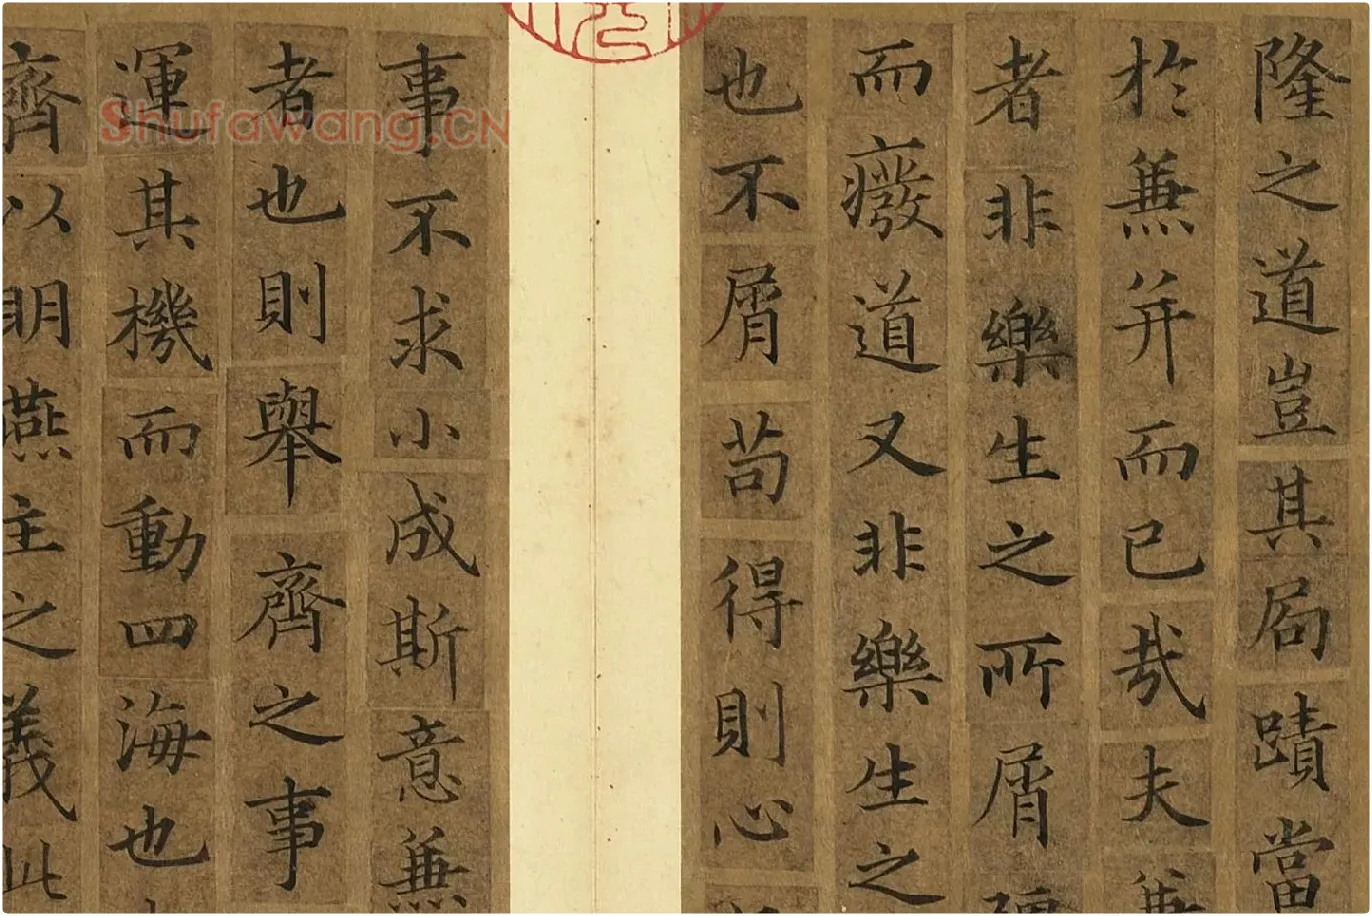 隆之道豈其局蹟當
於兼并而已哉夫兼
者非樂生之所屑彊
而癈道又非樂生之
也不屑苟得則心
事不求小成斯意兼
者也則舉齊之事
運其機而動四海也
齊以明燕主之義此
Shufawang.CN